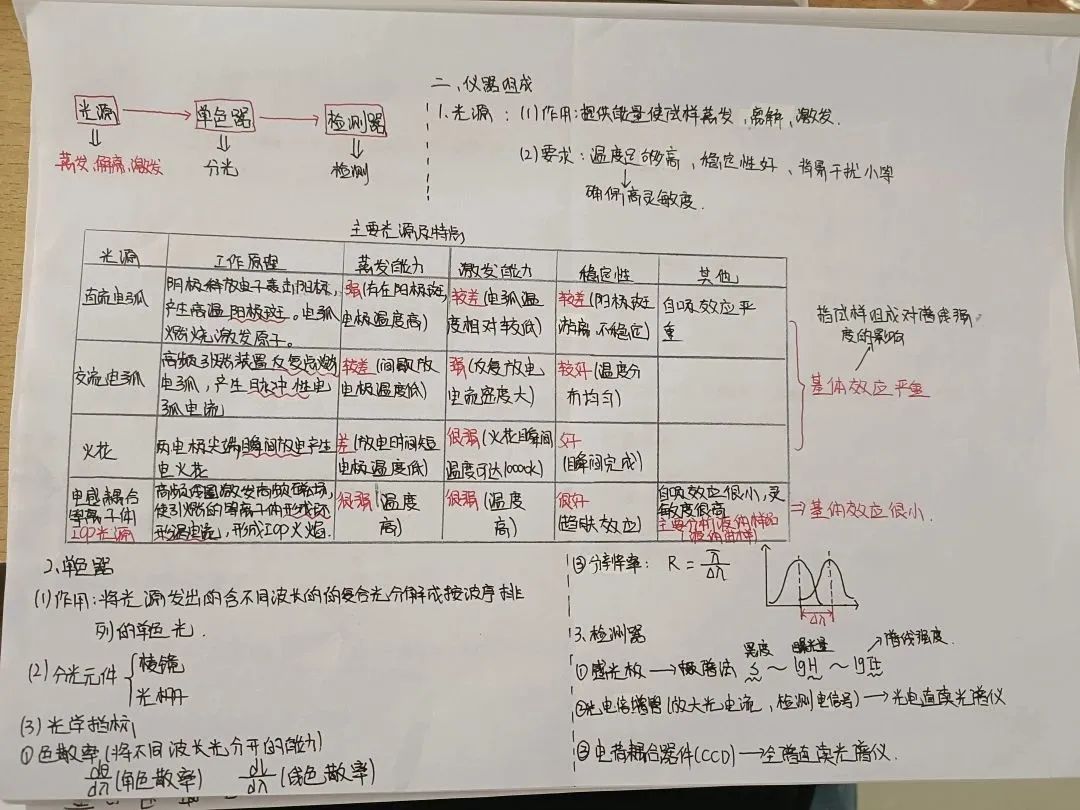 二、仪器组成
光源 → 单色器 → 检测器
蒸发、解离、激发
分光
检测
1.光源：(1)作用：提供能量使试样蒸发，离解，激发.
(2)要求：温度足够高，稳定性好、背景干扰小等
确保高灵敏度.
主要光源及特点
光源 工作原理 蒸发能力 激发能力 稳定性 其他
直流电弧
阴极释放电子轰击阳极，
产生高温阳极斑。电弧
燃烧激发原子。
强(存在阳极斑，
电极温度高)
较差(电弧温
度相对较低)
较差(阳极斑
游离,不稳定)
自吸效应严
重
交流电弧
高频引燃装置反复点燃
电弧，产生脉冲性电
弧电流
较差(间歇放
电极温度低)
强(反复放电
电流密度大)
较好(温度分
布均匀)
火花
两电极尖端瞬间放电产生
电火花
差(放电时间短
电极温度低)
很强(火花瞬间
温度可达10000k)
好
(瞬间完成)
指试样组成对谱线强
度的影响
基体效应严重
电感耦合
等离子体
ICP光源
高频线圈激发高频磁场，
使引燃的等离子体形成环
形涡电流，形成ICP火焰.
很强(温度
高)
很强(温度
高)
很好
(趋肤效应)
自吸效应很小，灵
敏度很高
主要分析液体样品
⇒基体效应很小.
2、单色器
(1)作用：将光源发出的含不同波长的的复合光分解成按波序排
列的单色光.
(2)分光元件 { 棱镜
光栅
(3)光学指标
①色散率(将不同波长光分开的能力)
dθ/dλ(角色散率) dl/dλ(线色散率)
③分辨率： R = λ̄/Δλ
Δλ
3、检测器
黑度 曝光量 谱线强度.
①感光板 → 摄谱法 S ~ lgH ~ lgIt
②光电倍增管(放大光电流，检测电信号) → 光电直读光谱仪
③电荷耦合器件(CCD) → 全谱直读光谱仪.